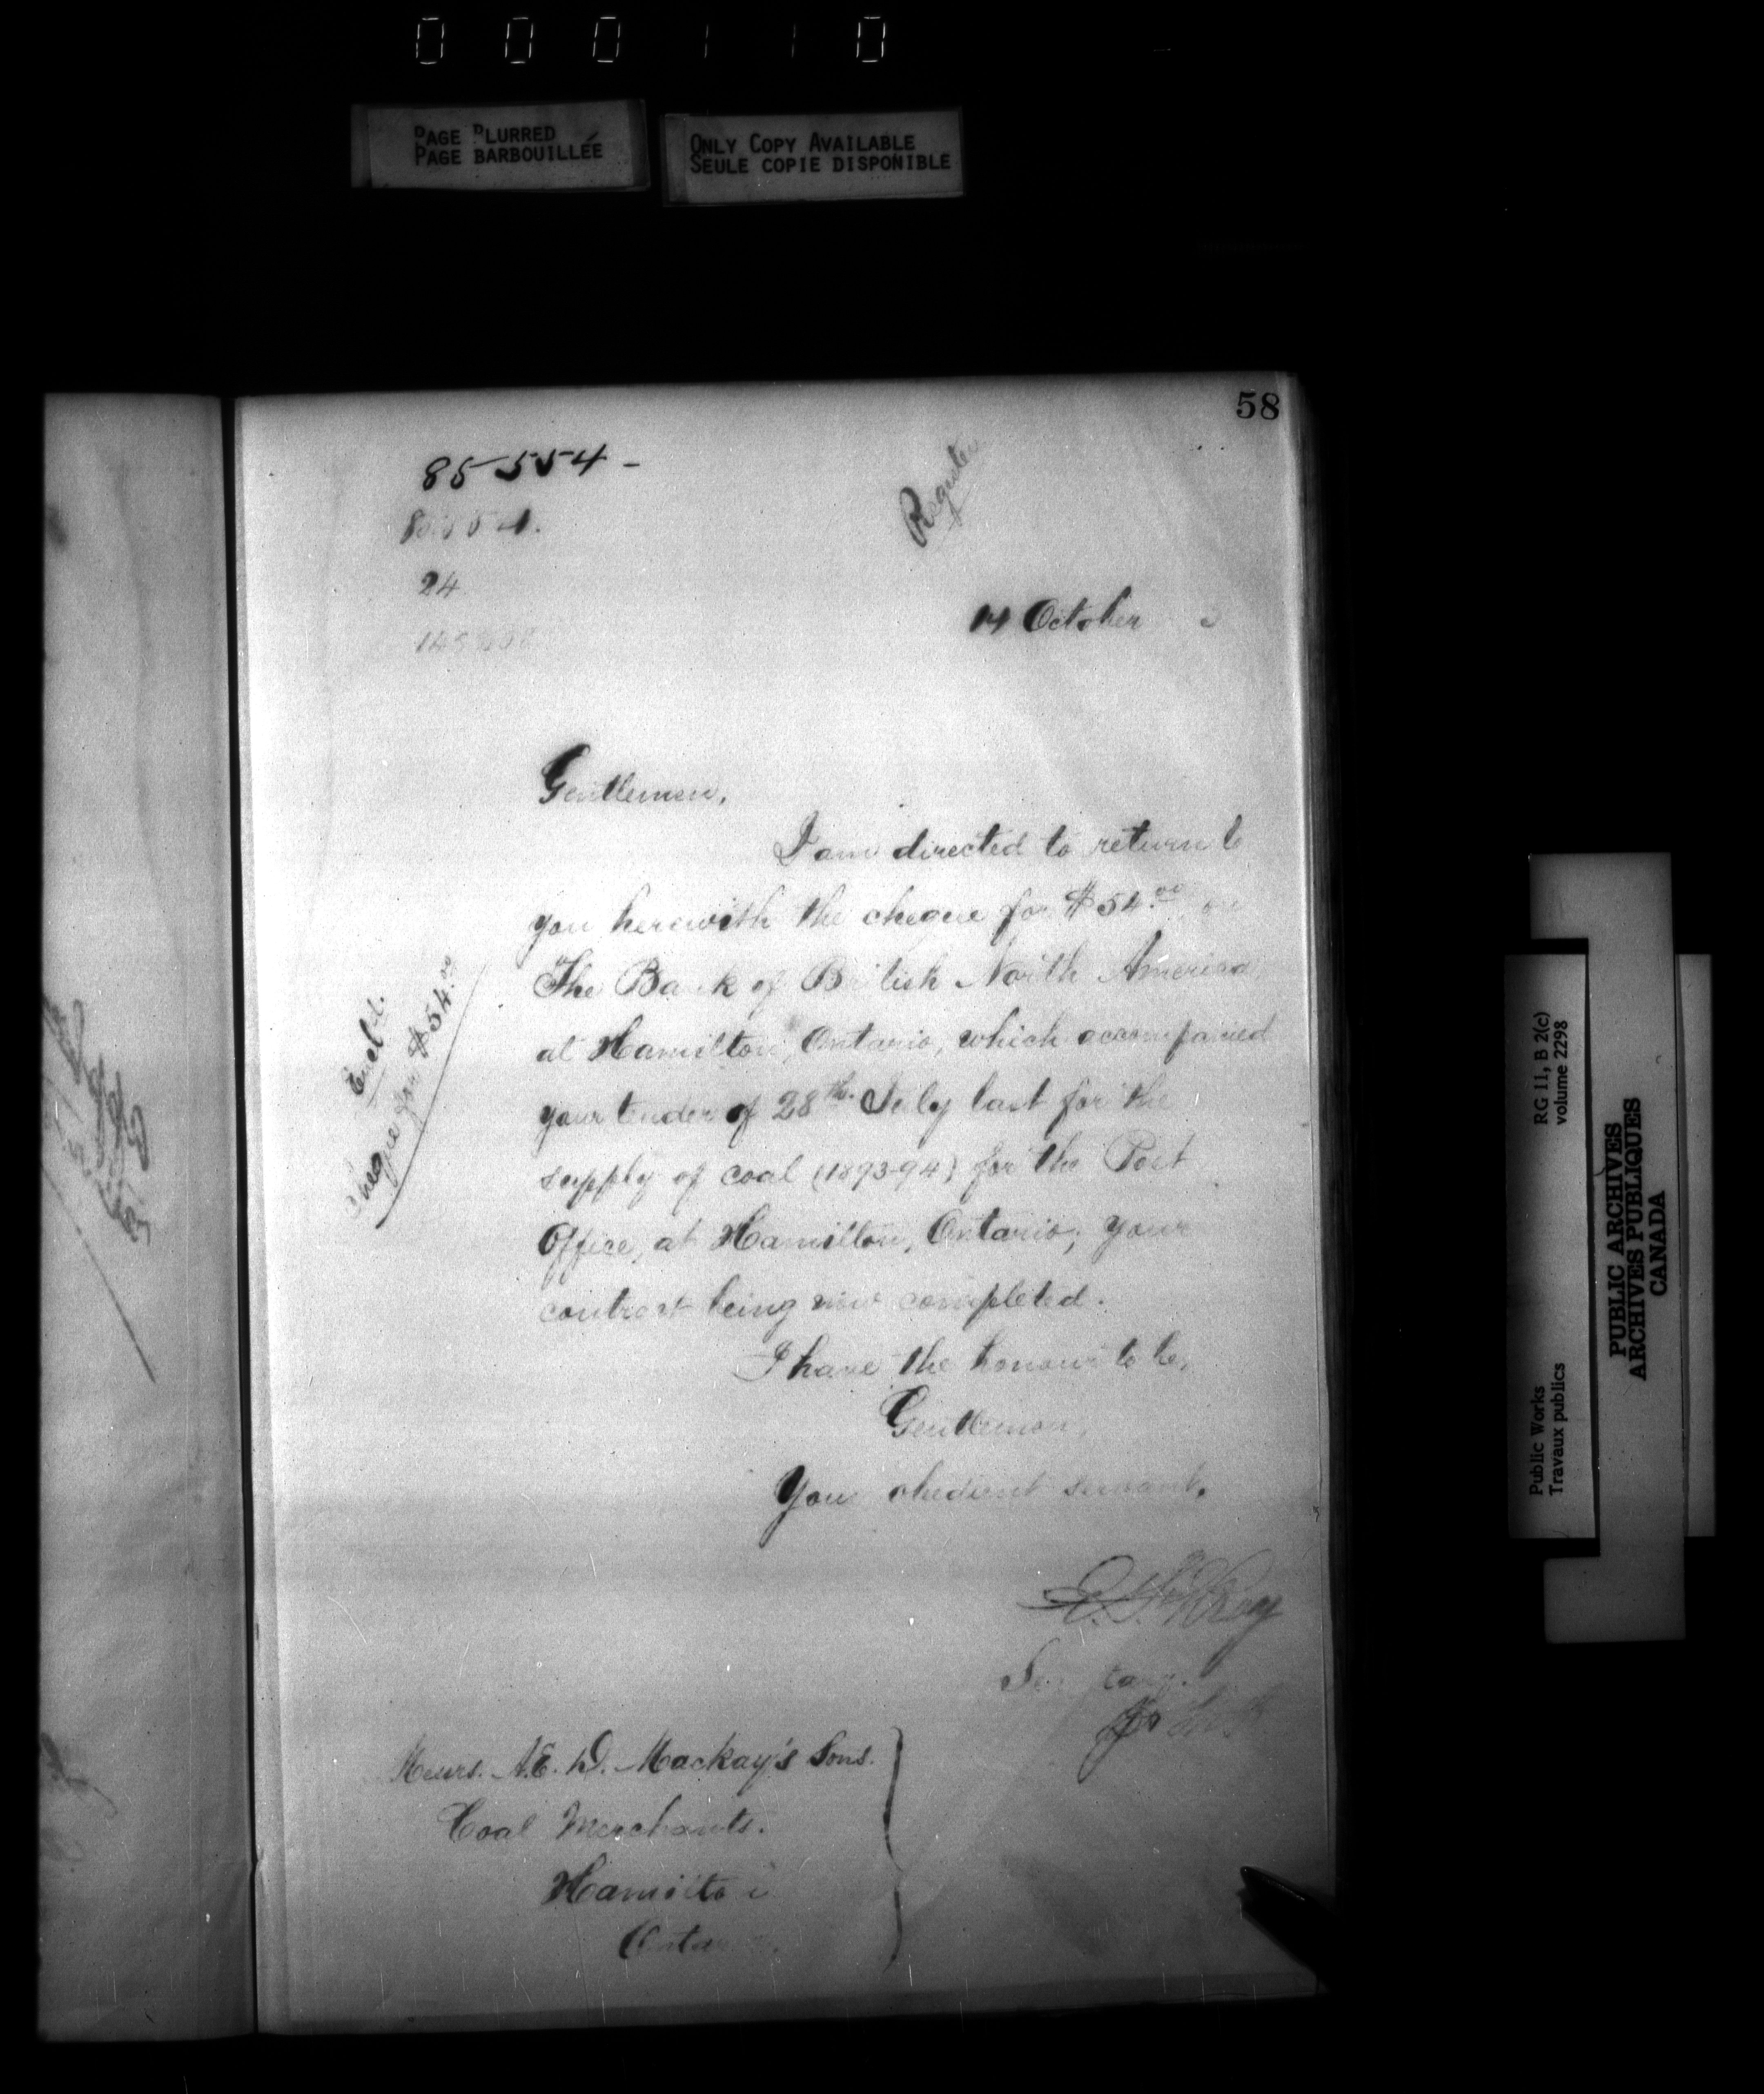 0 0 0 1 1 0
PAGE BLURRED
PAGE BARBOUILLÉE
ONLY COPY AVAILABLE
SEULE COPIE DISPONIBLE
58
85554 -
24
Register
14 October 3
Gentlemen,
I am directed to return to
you herewith the cheque for $54.00 on
The Bank of British North America
at Hamilton, Ontario, which accompanied
your tender of 28th. July last for the
supply of coal (1893-94) for the Post
Office, at Hamilton, Ontario; your
contract being now completed.
I have the honour to be,
Gentlemen,
Your obedient servant,
Secretary.
Encl.
Cheque for $54.00
Messrs. A. E. D. Mackay's Sons.
Coal Merchants.
Hamilton
Ontario.
RG 11, B 2(c)
volume 2298
Public Works
Travaux publics
PUBLIC ARCHIVES
ARCHIVES PUBLIQUES
CANADA